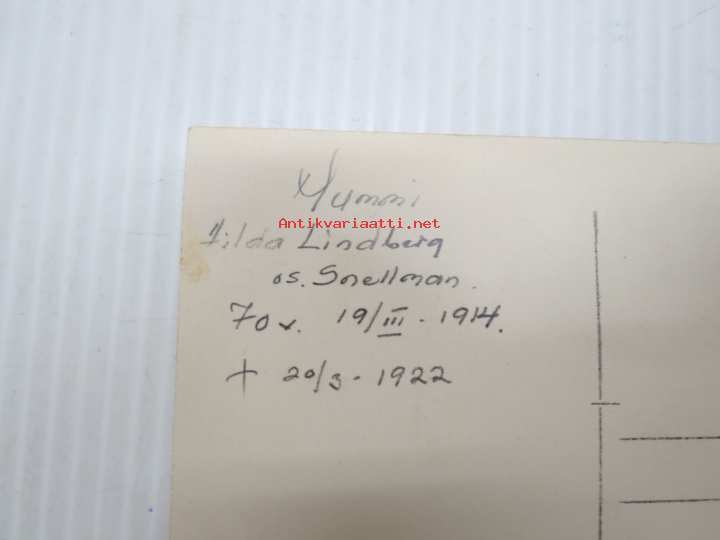 Mummi
Antikvariaatti.net
Hilda Lindberg
os. Snellman.
70 v. 19/III - 1914.
† 20/3 - 1922